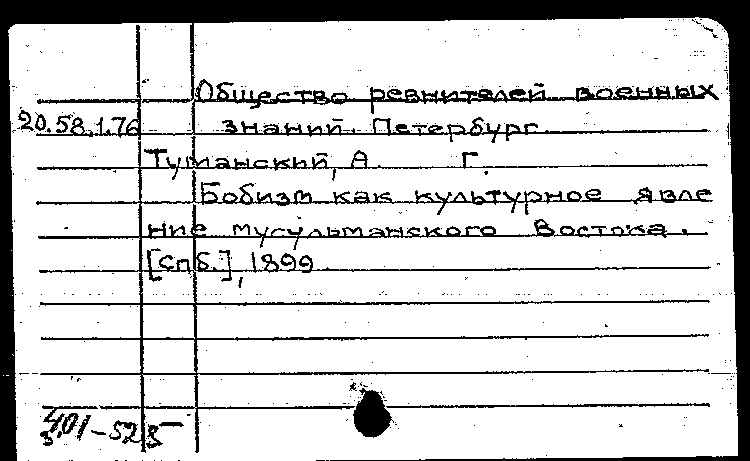 Общество ревнителей военных
20.58.1.76 знаний. Петербург
Туманский, А. Г.
Бобизм как культурное явле
ние мусульманского Востока.
[Спб.], 1899